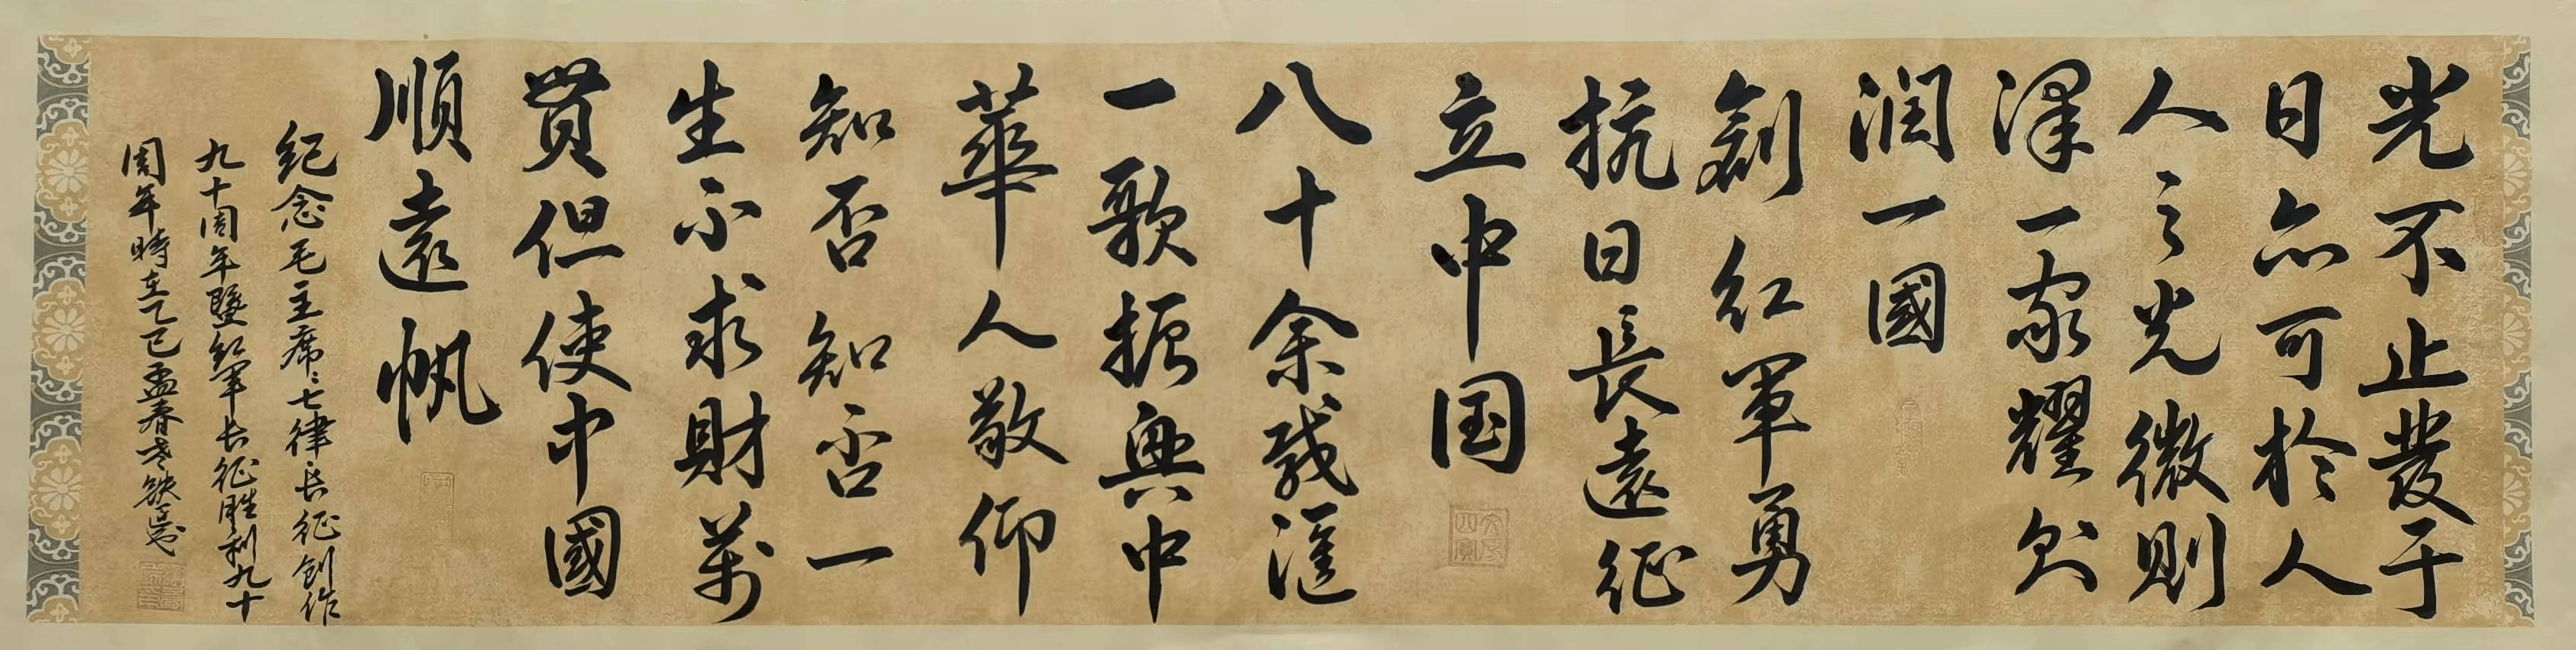 光不止發于
日亦可於人
人之光微則
澤一家耀則
润一國
創紅軍勇
抗日長遠征
立中国
八十余載滙
一歌振興中
華人敬仰
知否知否一
生不求財萬
貫但使中國
順遠帆
纪念毛主席〻七律长征创作
九十周年暨红军长征胜利九十
周年時在乙巳孟春